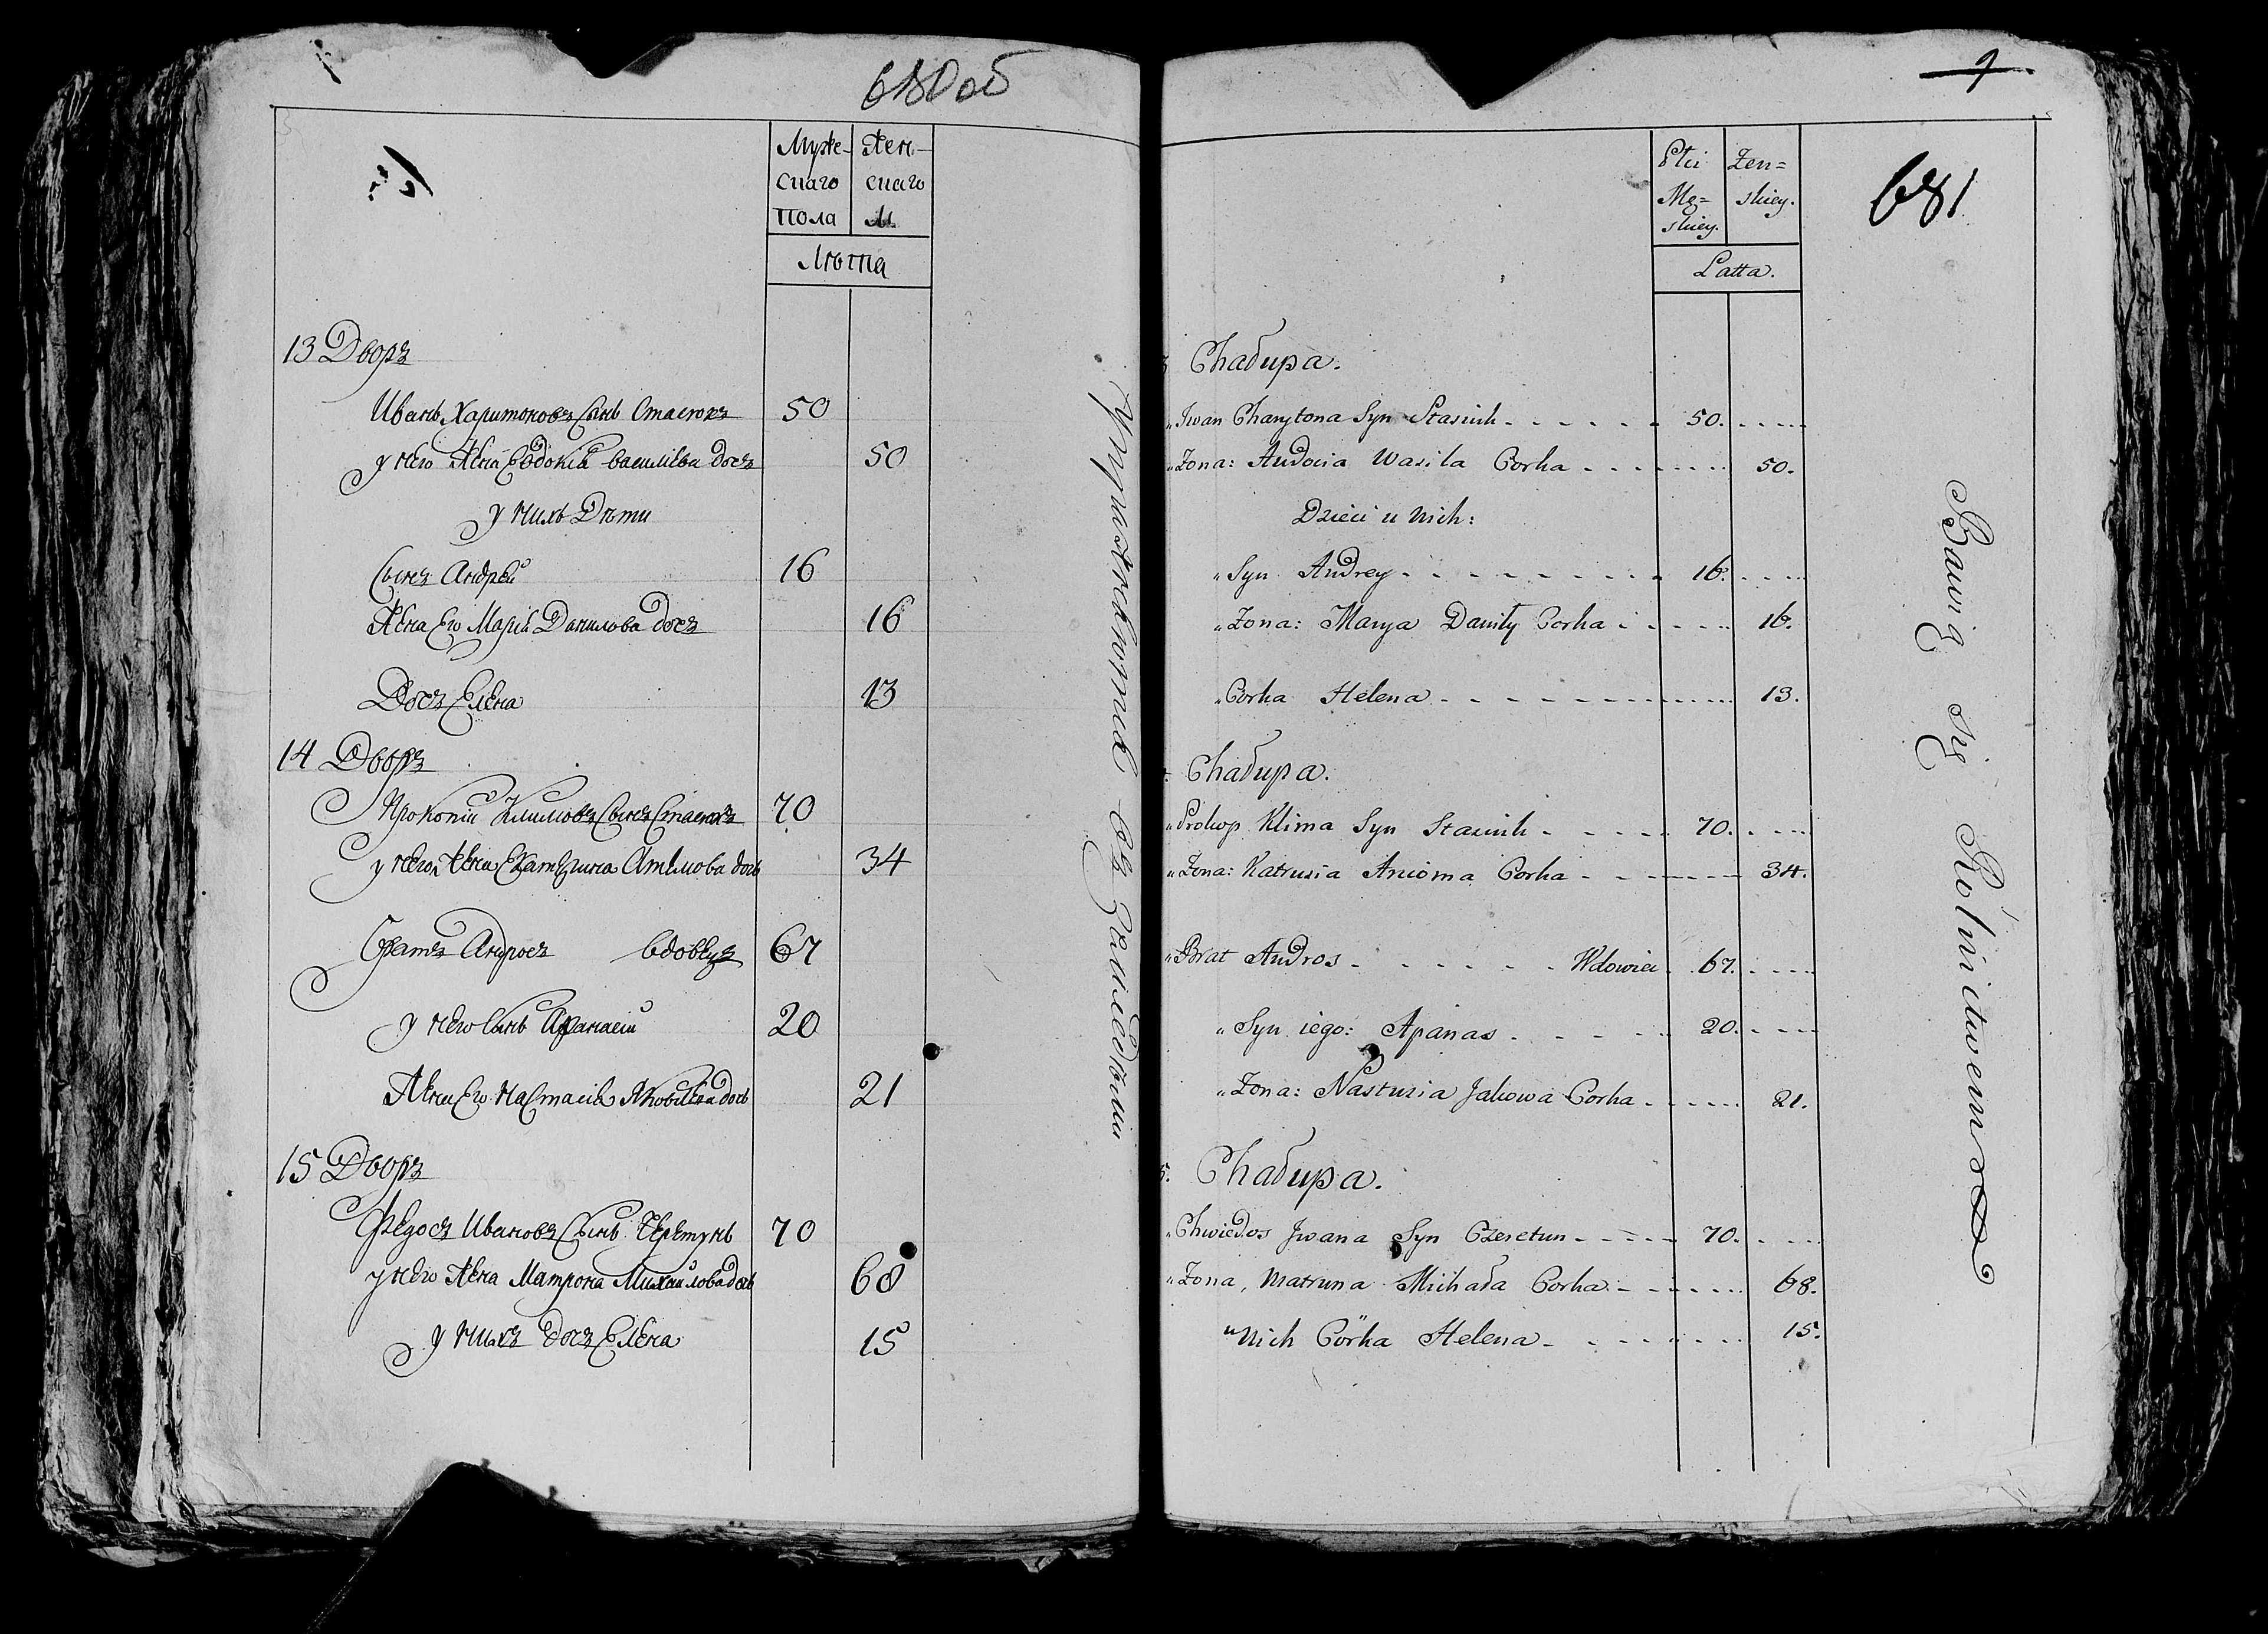 680 об
Муже- Жен-
скаго скаго
пола
Лѣта
13 Дворъ
Иванъ Харитоновъ Сынъ Стасюкъ 50
у него Жена Евдокія василіева дочъ 50
у нихъ Дѣти
Сынъ Андрей 16
Жена Его Марія Данилова дочъ 16
Дочъ Елена 13
14 Дворъ
Прокопій Климовъ Сынъ Стасюкъ 70
у него Жена Екатерина дочь 34
Братъ Андросъ вдовецъ 67
у него Сынъ Афанасій 20
Жена Его Настасія Яковлева дочь 21
15 Дворъ
Федосъ Ивановъ Сынъ Черетунъ 70
у него Жена Матрона Михайлова дочь 68
у нихъ дочъ Елена 15
Упражняются въ Земледѣліи
9
681
Płci Żen=
Mę= skiey.
skiey.
Latta.
Chałupa.
„Jwan Charytona Syn Stasiuk 50.
„Żona: Audocia Wasila Corka 50.
Dzieci u nich:
„Syn Andrey 16.
„Żona: Marya Daniły Corka 16.
„Corka Helena 13.
Chałupa.
„Prokop Klima Syn Stasiuk 70.
„Żona: Katrusia Corka 34.
„Brat Andros Wdowiec 67.
„Syn iego: Apanas 20.
„Żona: Nastusia Jakowa Corka 21.
5. Chałupa.
„Chwiedos Jwana Syn Czeretun 70.
„Żona, Matruna Michała Corka 68.
u Nich Córka Helena 15.
Bawią się Rolnictwem